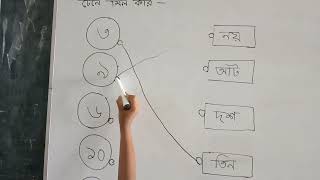 টেনে মিল করি –
৩ নয়
৯ আট
৬ দশ
১০ তিন